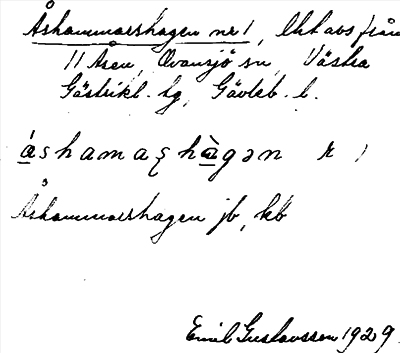 Åshammarshagen nr 1, lht avs från
11 Åsen, Ovansjö sn, Västra
Gästrikl. tg, Gävleb. l.
áshamaʂhàgən r 1
Åshammarshagen jb, kb
Emil Gustavsson 1929.